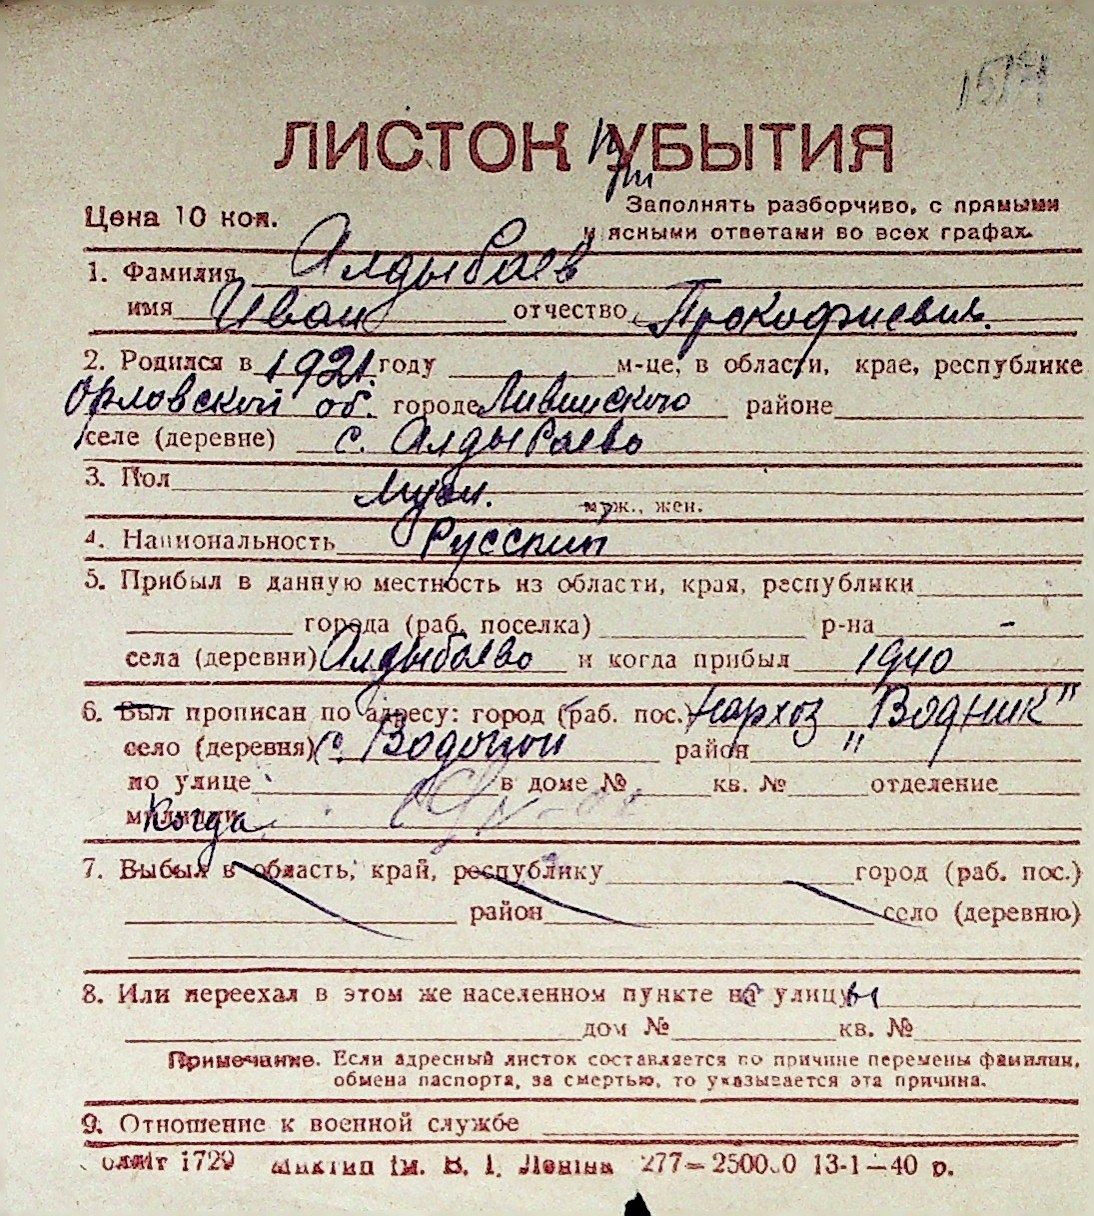 1514
ЛИСТОК УБЫТИЯ
При
Цена 10 коп.
Заполнять разборчиво, с прямыми
и ясными ответами во всех графах.
1. Фамилия Алдыбаев
имя Иван отчество Прокофиевич.
2. Родился в 1921. году м-це, в области, крае, республике
Орловской об. городе Ливинского районе
селе (деревне) с. Алдыбаево
3. Пол Муж.
муж., жен.
4. Национальность Русский
5. Прибыл в данную местность из области, края, республики
города (раб. поселка) р-на -
села (деревни) Алдыбаево и когда прибыл 1940
6. Был прописан по адресу: город (раб. пос.) Нархоз "Водник"
село (деревня) с. Водопой район "
по улице в доме № кв. № отделение
милиции Когда
7. Выбыл в область, край, республику город (раб. пос.)
район село (деревню)
8. Или переехал в этом же населенном пункте на улицу
дом № кв. №
Примечание. Если адресный листок составляется по причине перемены фамилии,
обмена паспорта, за смертью, то указывается эта причина.
9. Отношение к военной службе
олліт 1729 Миктип ім. В. І. Леніна 277—2500.0 13-1—40 р.